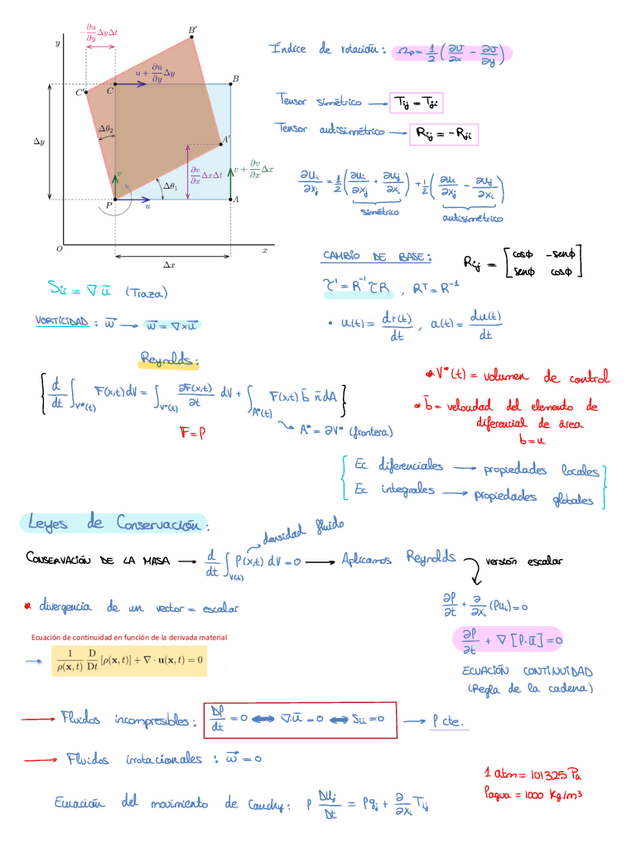 -∂u/∂y ΔyΔt
y
B'
u + ∂u/∂y Δy
C'
C
B
Δθ₂
A'
Δy
∂v/∂x ΔxΔt
v + ∂v/∂x Δx
v
Δθ₁
P
u
A
O
x
Δx
Índice de rotación: Ωp = 1/2 (∂v/∂x - ∂v/∂y)
Tensor simétrico → Tij = Tji
Tensor autisimétrico → Rij = -Rji
∂ui/∂xj = 1/2 (∂ui/∂xj + ∂uj/∂xi) + 1/2 (∂ui/∂xj - ∂uj/∂xi)
simétrico
autisimétrico
CAMBIO DE BASE: Rij = [cosϕ -senϕ
senϕ cosϕ]
τ' = R⁻¹ τ R , Rᵀ = R⁻¹
• u(t) = dr(t)/dt , a(t) = du(t)/dt
Sii = ∇·u̅ (Traza)
VORTICIDAD: w⃗ → w⃗ = ∇×u̅
Reynolds:
{ d/dt ∫V*(t) F(x,t) dV = ∫V*(t) ∂F(x,t)/∂t dV + ∫A*(t) F(x,t) b̅ n̅ dA }
F = ρ
A* = ∂V* (frontera)
* V*(t) = volumen de control
* b̅ = velocidad del elemento de
diferencial de área
b = u
{ Ec diferenciales → propiedades locales
Ec integrales → propiedades globales }
Leyes de Conservación:
densidad fluido
CONSERVACIÓN DE LA MASA → d/dt ∫V(t) ρ(x,t) dV = 0 → Aplicamos Reynolds
versión escalar
* divergencia de un vector = escalar
∂ρ/∂t + ∂/∂xi (ρui) = 0
Ecuación de continuidad en función de la derivada material
→ 1/ρ(x,t) D/Dt [ρ(x,t)] + ∇ · u(x,t) = 0
∂ρ/∂t + ∇[ρ·u̅] = 0
ECUACIÓN CONTINUIDAD
(Regla de la cadena)
→ Fluidos incompresibles: Dρ/dt = 0 ⟺ ∇·u̅ = 0 ⟺ Sii = 0 → ρ cte.
→ Fluidos irrotacionales: w⃗ = 0
1 atm = 101325 Pa
ρagua = 1000 Kg/m³
Ecuación del movimiento de Cauchy: ρ Duj/Dt = ρgj + ∂/∂xi Tij